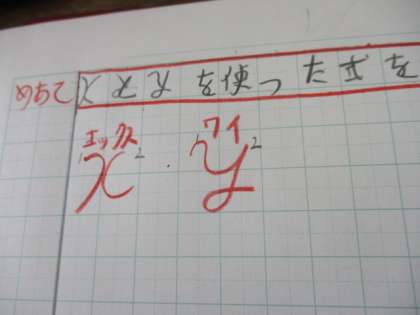 めあて xとyを使った式を
エックス ワイ
x² . y²